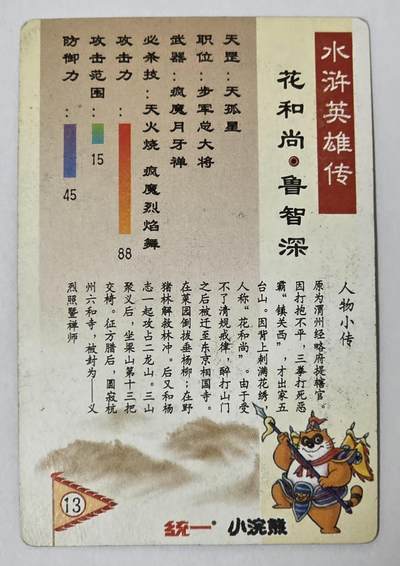 水浒英雄传
花和尚·鲁智深
天罡：天孤星
职位：步军总大将
武器：疯魔月牙禅
必杀技：天火烧 疯魔烈焰舞
攻击力：
88
攻击范围：
15
防御力：
45
人物小传
原为渭州经略府提辖官。
因打抱不平，三拳打死恶
霸“镇关西”，才出家五
台山。因背上刺满花绣，
人称“花和尚”。由于受
不了清规戒律，醉打山门
之后被迁至东京相国寺。
在菜园倒拔垂杨柳；在野
猪林解救林冲。后又和杨
志一起攻占二龙山。三山
聚义后，坐梁山第十三把
交椅。征方腊后，圆寂杭
州六和寺，被封为——义
烈照暨禅师
13
统一 小浣熊